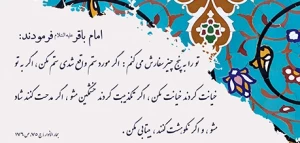 امام باقر علیه السلام فرمودند:
تو را به پنج چیز سفارش می کنم : اگر مورد ستم واقع شدی ستم مکن ، اگر به تو
خیانت کردند خیانت مکن ، اگر تکذیبت کردند خشمگین مشو ، اگر مدحت کنند شاد
مشو ، و اگر نکوهشت کنند ، بیتابی مکن .